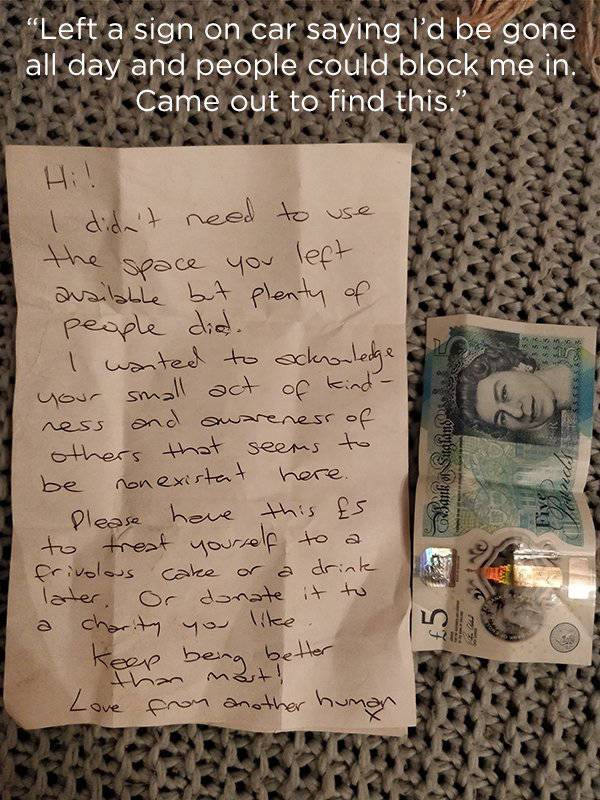 “Left a sign on car saying I’d be gone
all day and people could block me in.
Came out to find this.”
Hi!
I didn't need to use
the space you left
available but plenty of
people did.
I wanted to acknowledge
your small act of kind-
ness and awareness of
others that seems to
be nonexistent here.
Please have this £5
to treat yourself to a
frivolous cake or a drink
later. Or donate it to
a charity you like.
Keep being better
than most!
Love from another human
Bank of England
Five
Pounds
£5